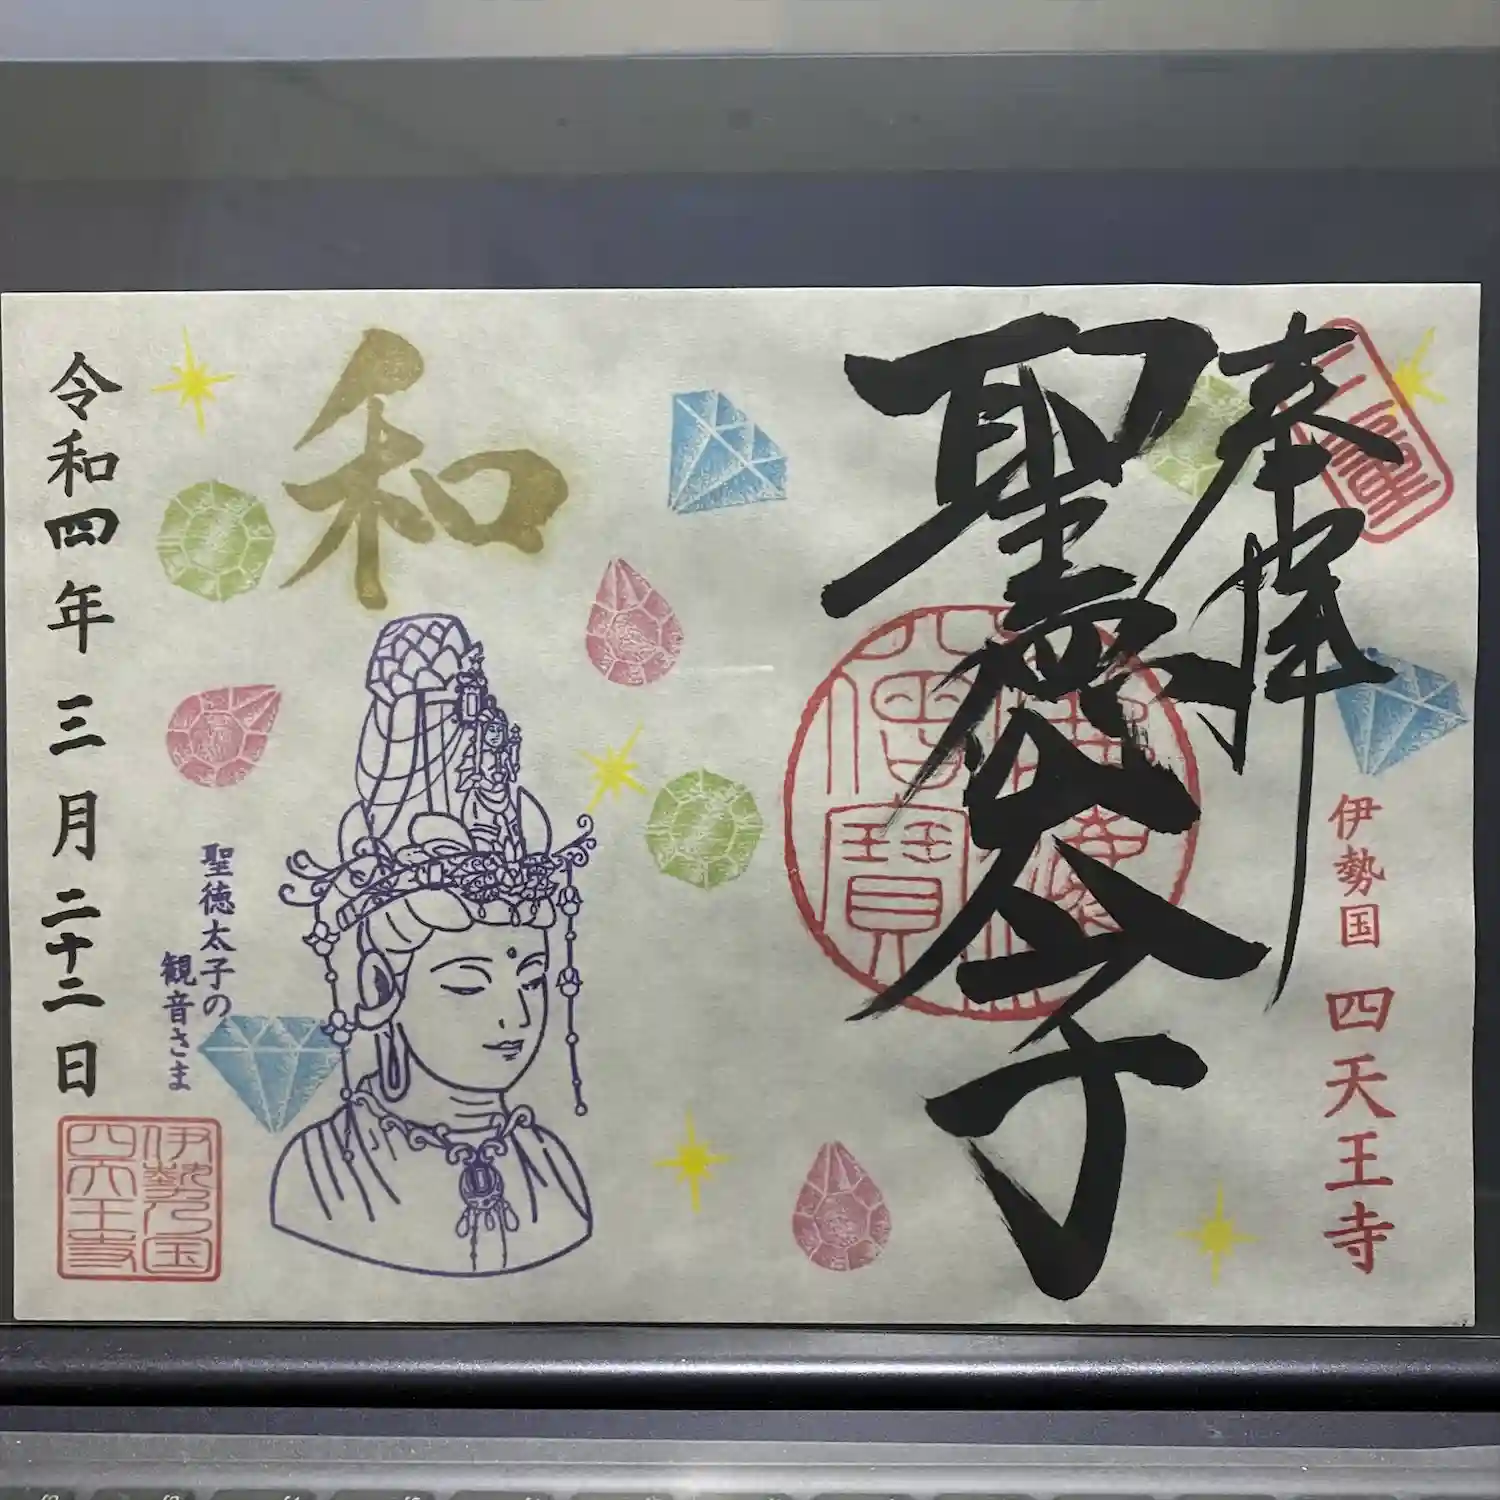 奉拝
伊勢国 四天王寺
聖徳太子
和
聖徳太子の
観音さま
令和四年 三月 二十二日
伊勢乃国
四天王寺